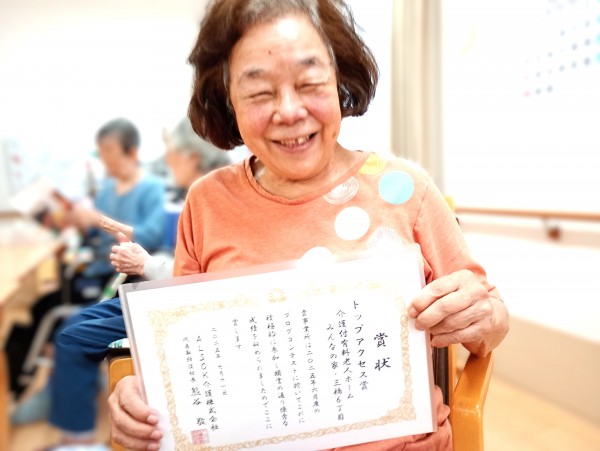 賞状
トップアクセス賞
介護付有料老人ホーム
みんなの家・三橋6丁目
貴事業所は二〇二五年六月度の
ブログコンテストに於いてこれに
積極的に参加し頭書の通り優秀な
成績を納められましたのでここに
賞します
二〇二五年 七月一一日
ALSOK介護株式会社
代表取締役社長 熊谷 敬